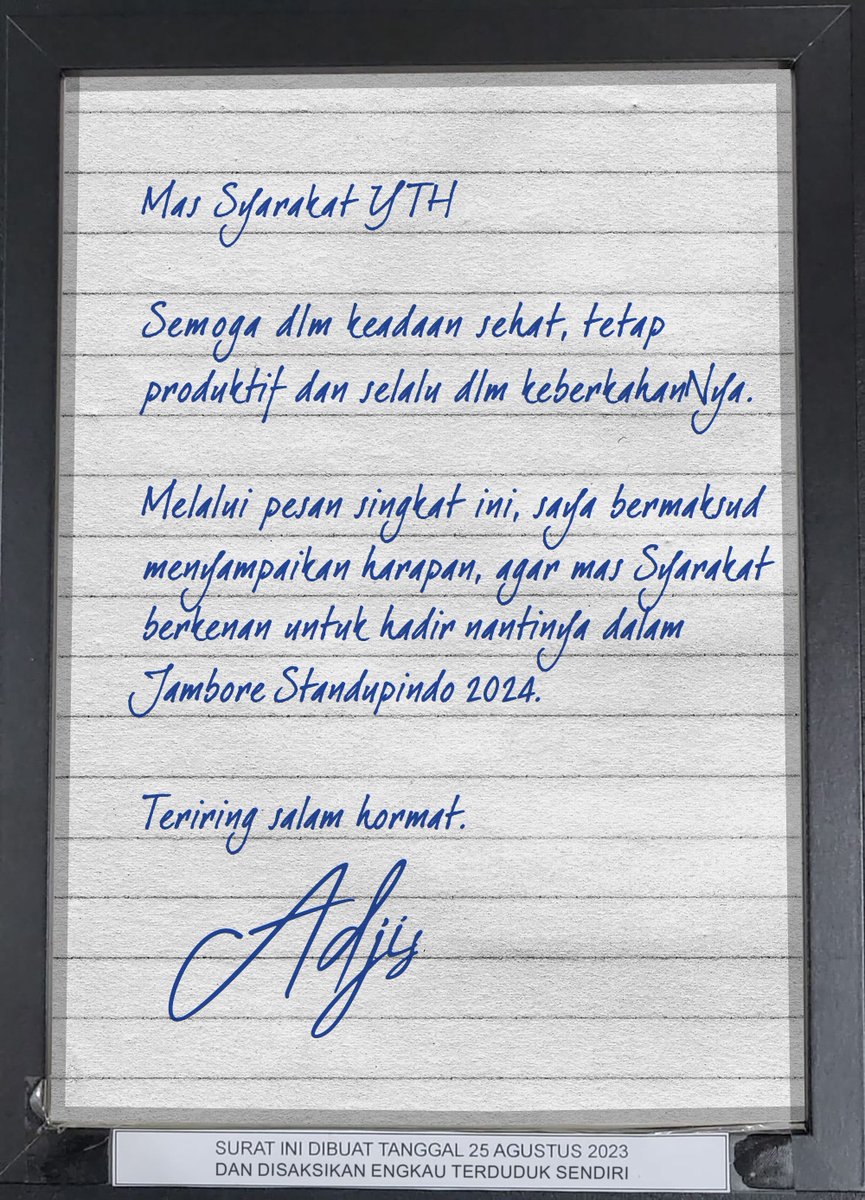 Mas Syarakat YTH
Semoga dlm keadaan sehat, tetap
produktif dan selalu dlm keberkahanNya.
Melalui pesan singkat ini, saya bermaksud
menyampaikan harapan, agar mas Syarakat
berkenan untuk hadir nantinya dalam
Jambore Standupindo 2024.
Teriring salam hormat.
Adjis
SURAT INI DIBUAT TANGGAL 25 AGUSTUS 2023
DAN DISAKSIKAN ENGKAU TERDUDUK SENDIRI